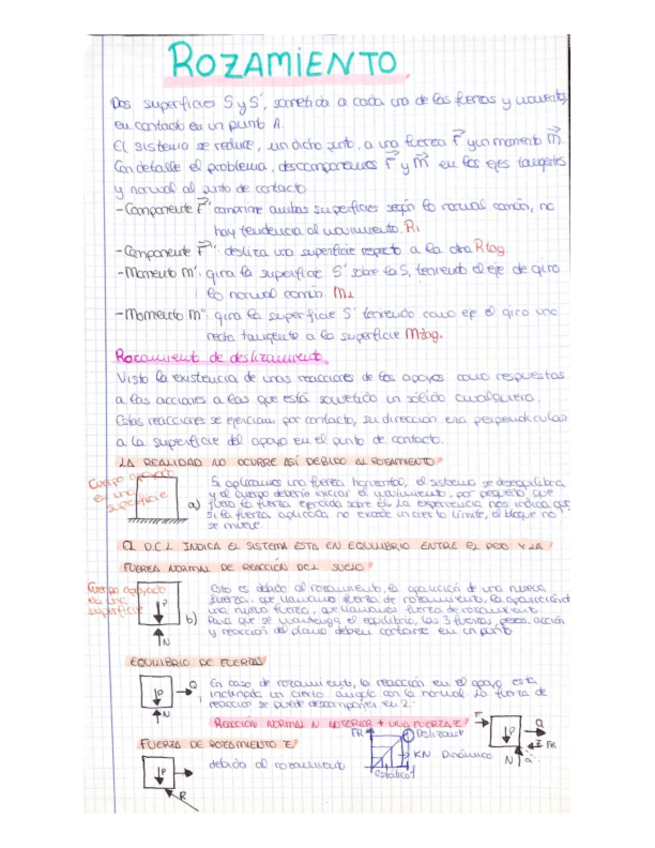 ROZAMIENTO
Dos superficies S y S', sometida a cada una de las fuerzas y momentos,
en contacto en un punto A.
El sistema se reduce, en dicho punto, a una fuerza F y un momento m.
Con detalle el problema, descomponemos F y M en los ejes tangentes
y normal al punto de contacto
-Componente F' comprime ambas superficies según la normal común, no
hay tendencia al movimiento. R⊥
-Componente F'': desliza una superficie respecto a la otra Rtag
-Momento m': gira la superficie S' sobre la S, teniendo el eje de giro
la normal común. M⊥
-Momento m'': gira la superficie S' teniendo como eje el giro una
recta tangente a la superficie Mtag.
Rozamient de deslizamient
Visto la existencia de unas reacciones de los apoyos como respuestas
a las acciones a las que está sometido un sólido cualquiera.
Estas reacciones se ejercían por contacto, su dirección era perpendicular
a la superficie del apoyo en el punto de contacto.
LA REALIDAD NO OCURRE ASÍ DEBIDO AL ROZAMIENTO
Cuerpo apoyado
en una
superficie
a) Si aplicamos una fuerza horizontal, el sistema se desequilibra
y el cuerpo debería iniciar el movimiento, por pequeño que
fuera la fuerza ejercida sobre él. La experiencia nos indica que
si la fuerza aplicada no excede un cierto límite, el bloque no
se mueve.
EL D.C.L INDICA EL SISTEMA ESTA EN EQUILIBRIO ENTRE EL PESO Y LA
FUERZA NORMAL DE REACCIÓN DEL SUELO
Cuerpo apoyado
en una
superficie
P
N
b) Esto es debido al rozamiento, la aparición de una nueva
fuerza, que llamamos fuerza de rozamiento, la aparición d
una nueva fuerza, que llamamos fuerza de rozamiento
Para que se mantenga el equilibrio, las 3 fuerzas, peso, acción
y reacción del plano deben cortarse en un punto
EQUILIBRIO DE FUERZAS
P
Q
N
En caso de rozamiento, la reacción en el apoyo esta
inclinada un cierto ángulo con la normal. La fuerza de
reacción se puede descomponer en 2:
REACCIÓN NORMAL N ANTERIOR + UNA FUERZA Z
FUERZA DE ROZAMIENTO Z
P
R
debido al rozamiento
FR
Deslizante
KN Dinámico
Estático
F
P
Q
FR
N